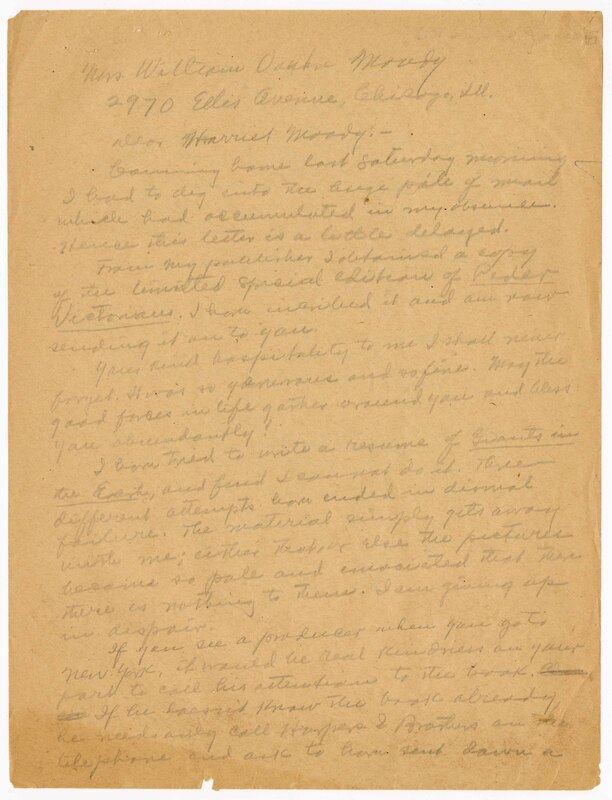 Mrs William Vaughn Moody
2970 Ellis Avenue, Chicago, Ill.
Dear Harriet Moody:-
Comming home last Saturday morning
I had to dig into the large pile of mail
which had accumulated in my absence.
Hence this letter is a little delayed.
From my publisher I obtained a copy
of the limited special edition of Peder
Victorious. I have inscribed it and am now
sending it on to you.
Your kind hospitality to me I shall never
forget. It was so generous and so fine. May the
good forces in life gather around you and bless
you abundantly!
I have tried to write a resume of Giants in
the Earth, and find I can not do it. Three
different attempts have ended in dismal
failure. The material simply gets away
with me; either that or else the pictures
become so pale and emaciated that there
is nothing to them. I am giving up
in dispair.
If you see a producer when you get to
New York, it would be real kindness on your
part to call his attention to the book.
If he doesn't know the book already
he needs only call Harpers & Brothers on the
telephone and ask to have sent down a